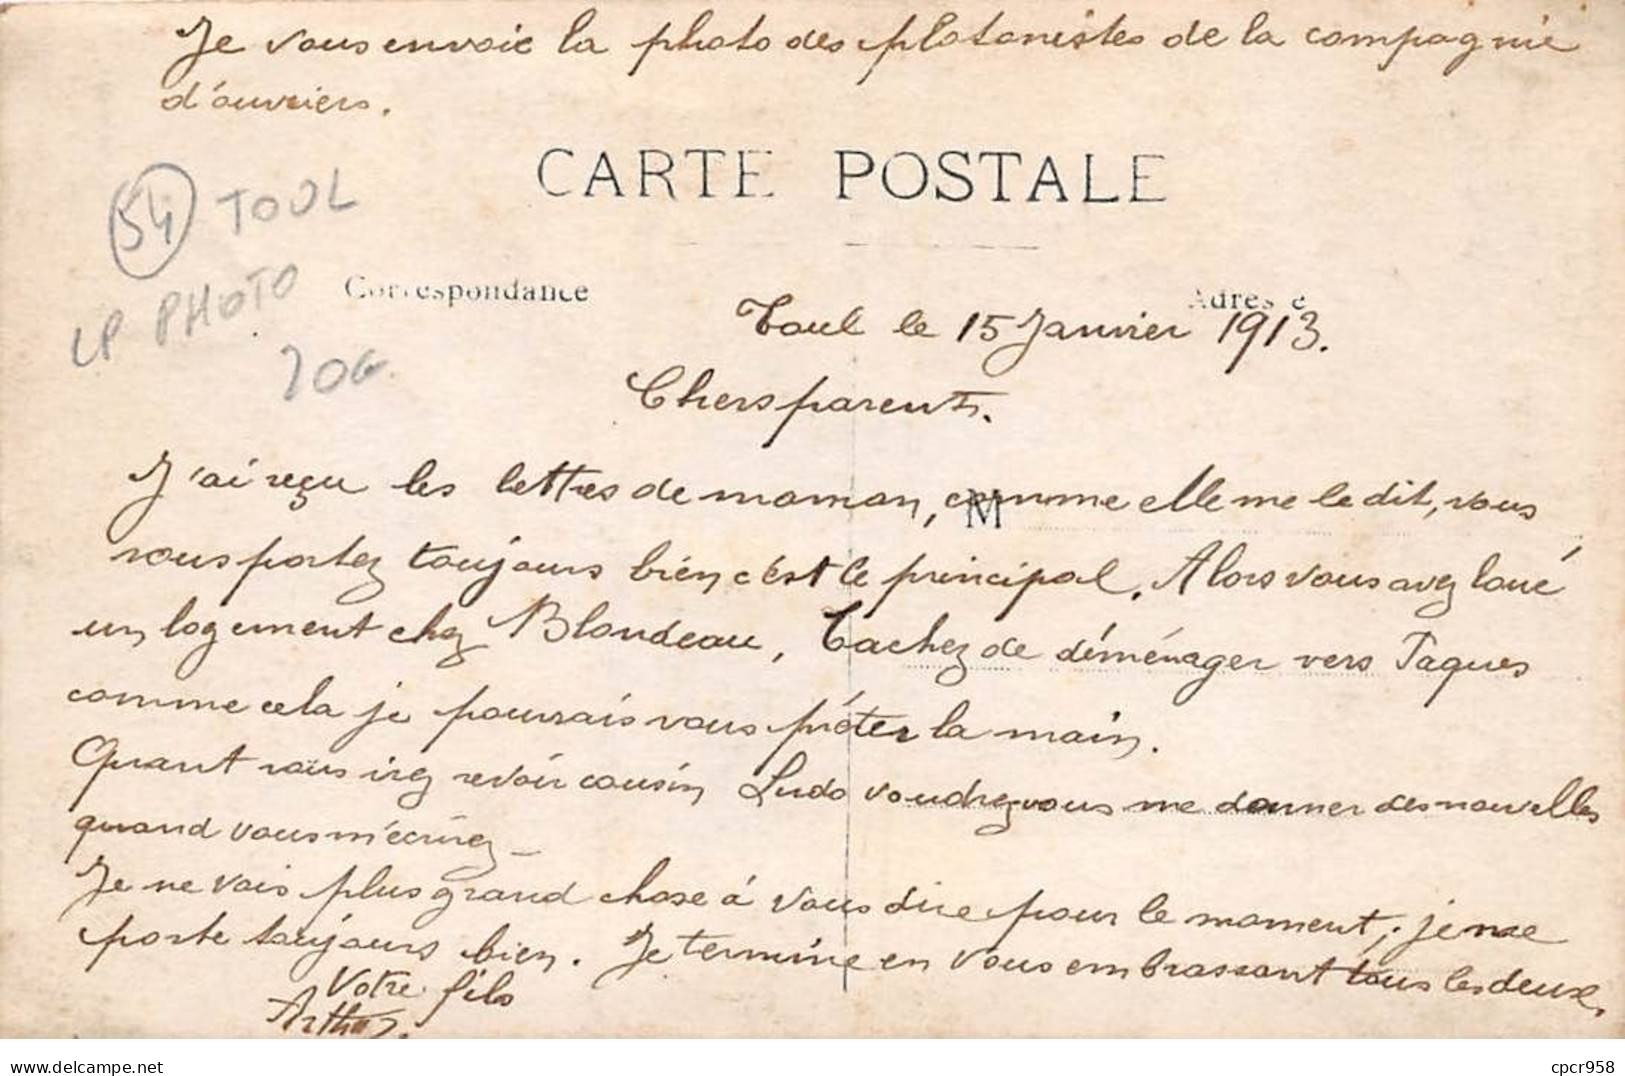 Je vous envoie la photo des plotonistes de la compagnie
d'ouvriers.
CARTE POSTALE
54 TOUL
CP PHOTO
20G
Correspondance
Adresse
Toul le 15 Janvier 1913.
Chers parents.
J'ai reçu les lettres de maman, comme elle me le dit, vous
M
vous portez toujours bien, c'est le principal. Alors vous avez loué
un logement chez Blondeau, Tachez de déménager vers Paques
comme cela je pourrais vous préter la main.
Quant vous irez revoir cousin Ludo voudrez-vous me donner des nouvelles
quand vous m'écrirez -
Je ne vois plus grand chose à vous dire pour le moment, je me
porte toujours bien. Je termine en vous embrassant tous les deux,
Votre fils
Arthur.
cpcr958